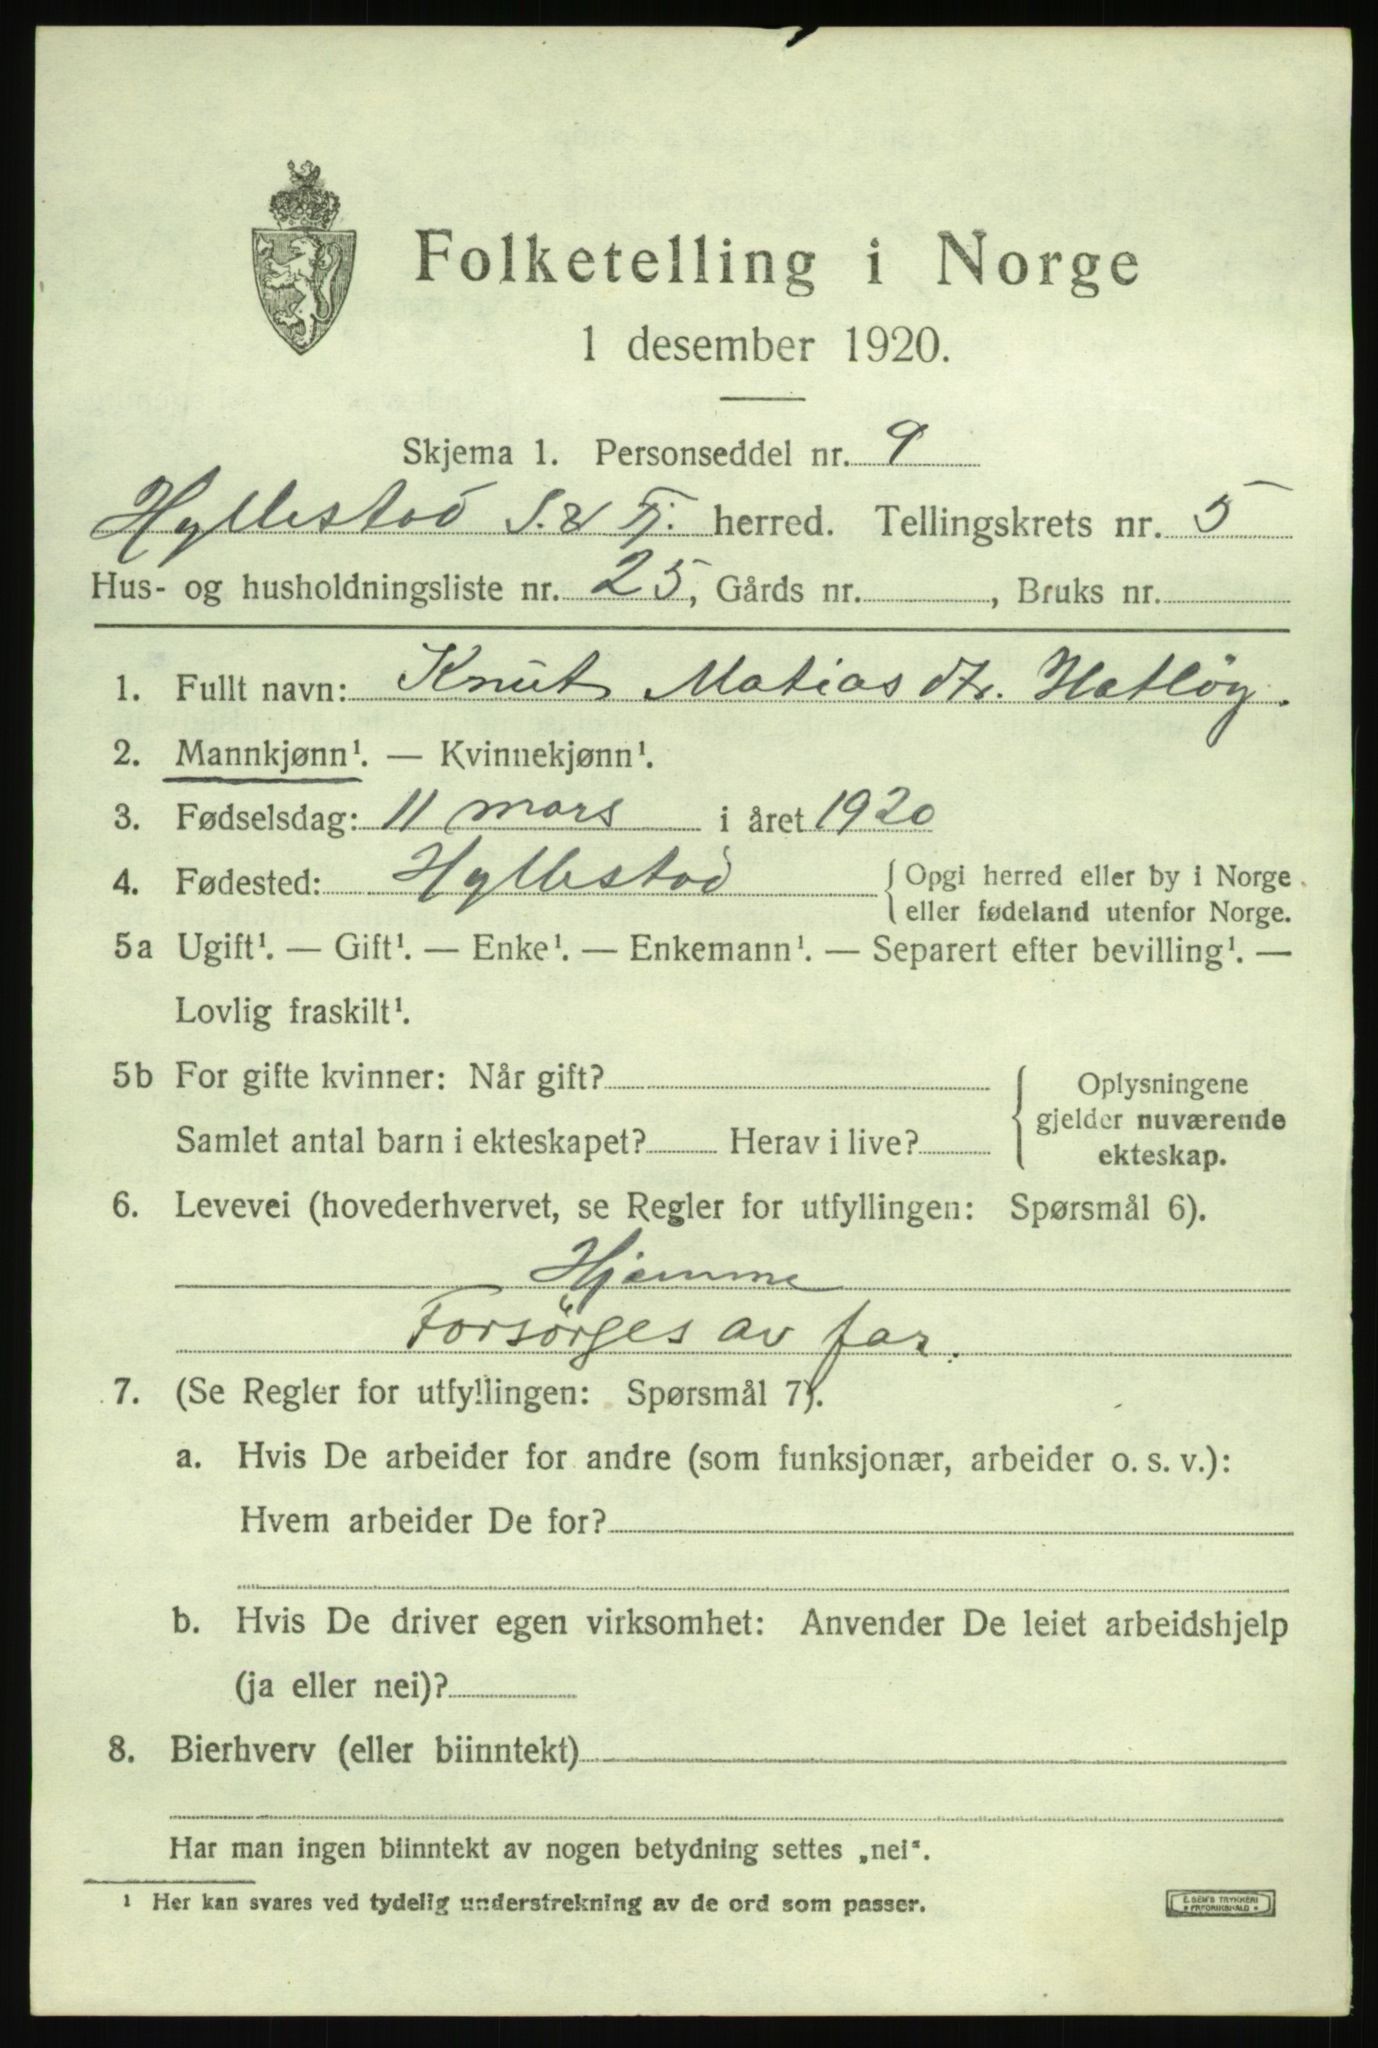 Folketelling i Norge
1 desember 1920.
Skjema 1. Personseddel nr. 9
Hyllestad S. & Fj. herred. Tellingskrets nr. 5
Hus- og husholdningsliste nr. 25, Gårds nr. , Bruks nr.
1. Fullt navn: Knut Matias Hatløy.
2. Mannkjønn¹. — Kvinnekjønn¹.
3. Fødselsdag: 11 mars i året 1920
4. Fødested: Hyllestad { Opgi herred eller by i Norge
eller fødeland utenfor Norge.
5a Ugift¹. — Gift¹. — Enke¹. — Enkemann¹. — Separert efter bevilling¹. —
Lovlig fraskilt¹.
5b For gifte kvinner: Når gift?
Samlet antal barn i ekteskapet? Herav i live?
{ Oplysningene
gjelder nuværende
ekteskap.
6. Levevei (hovederhvervet, se Regler for utfyllingen: Spørsmål 6).
Hjemme
Forsørges av far.
7. (Se Regler for utfyllingen: Spørsmål 7).
a. Hvis De arbeider for andre (som funksjonær, arbeider o. s. v.):
Hvem arbeider De for?
b. Hvis De driver egen virksomhet: Anvender De leiet arbeidshjelp
(ja eller nei)?
8. Bierhverv (eller biinntekt)
Har man ingen biinntekt av nogen betydning settes „nei".
¹ Her kan svares ved tydelig understrekning av de ord som passer.
E. SEM'S TRYKKERI
FREDRIKSHALD